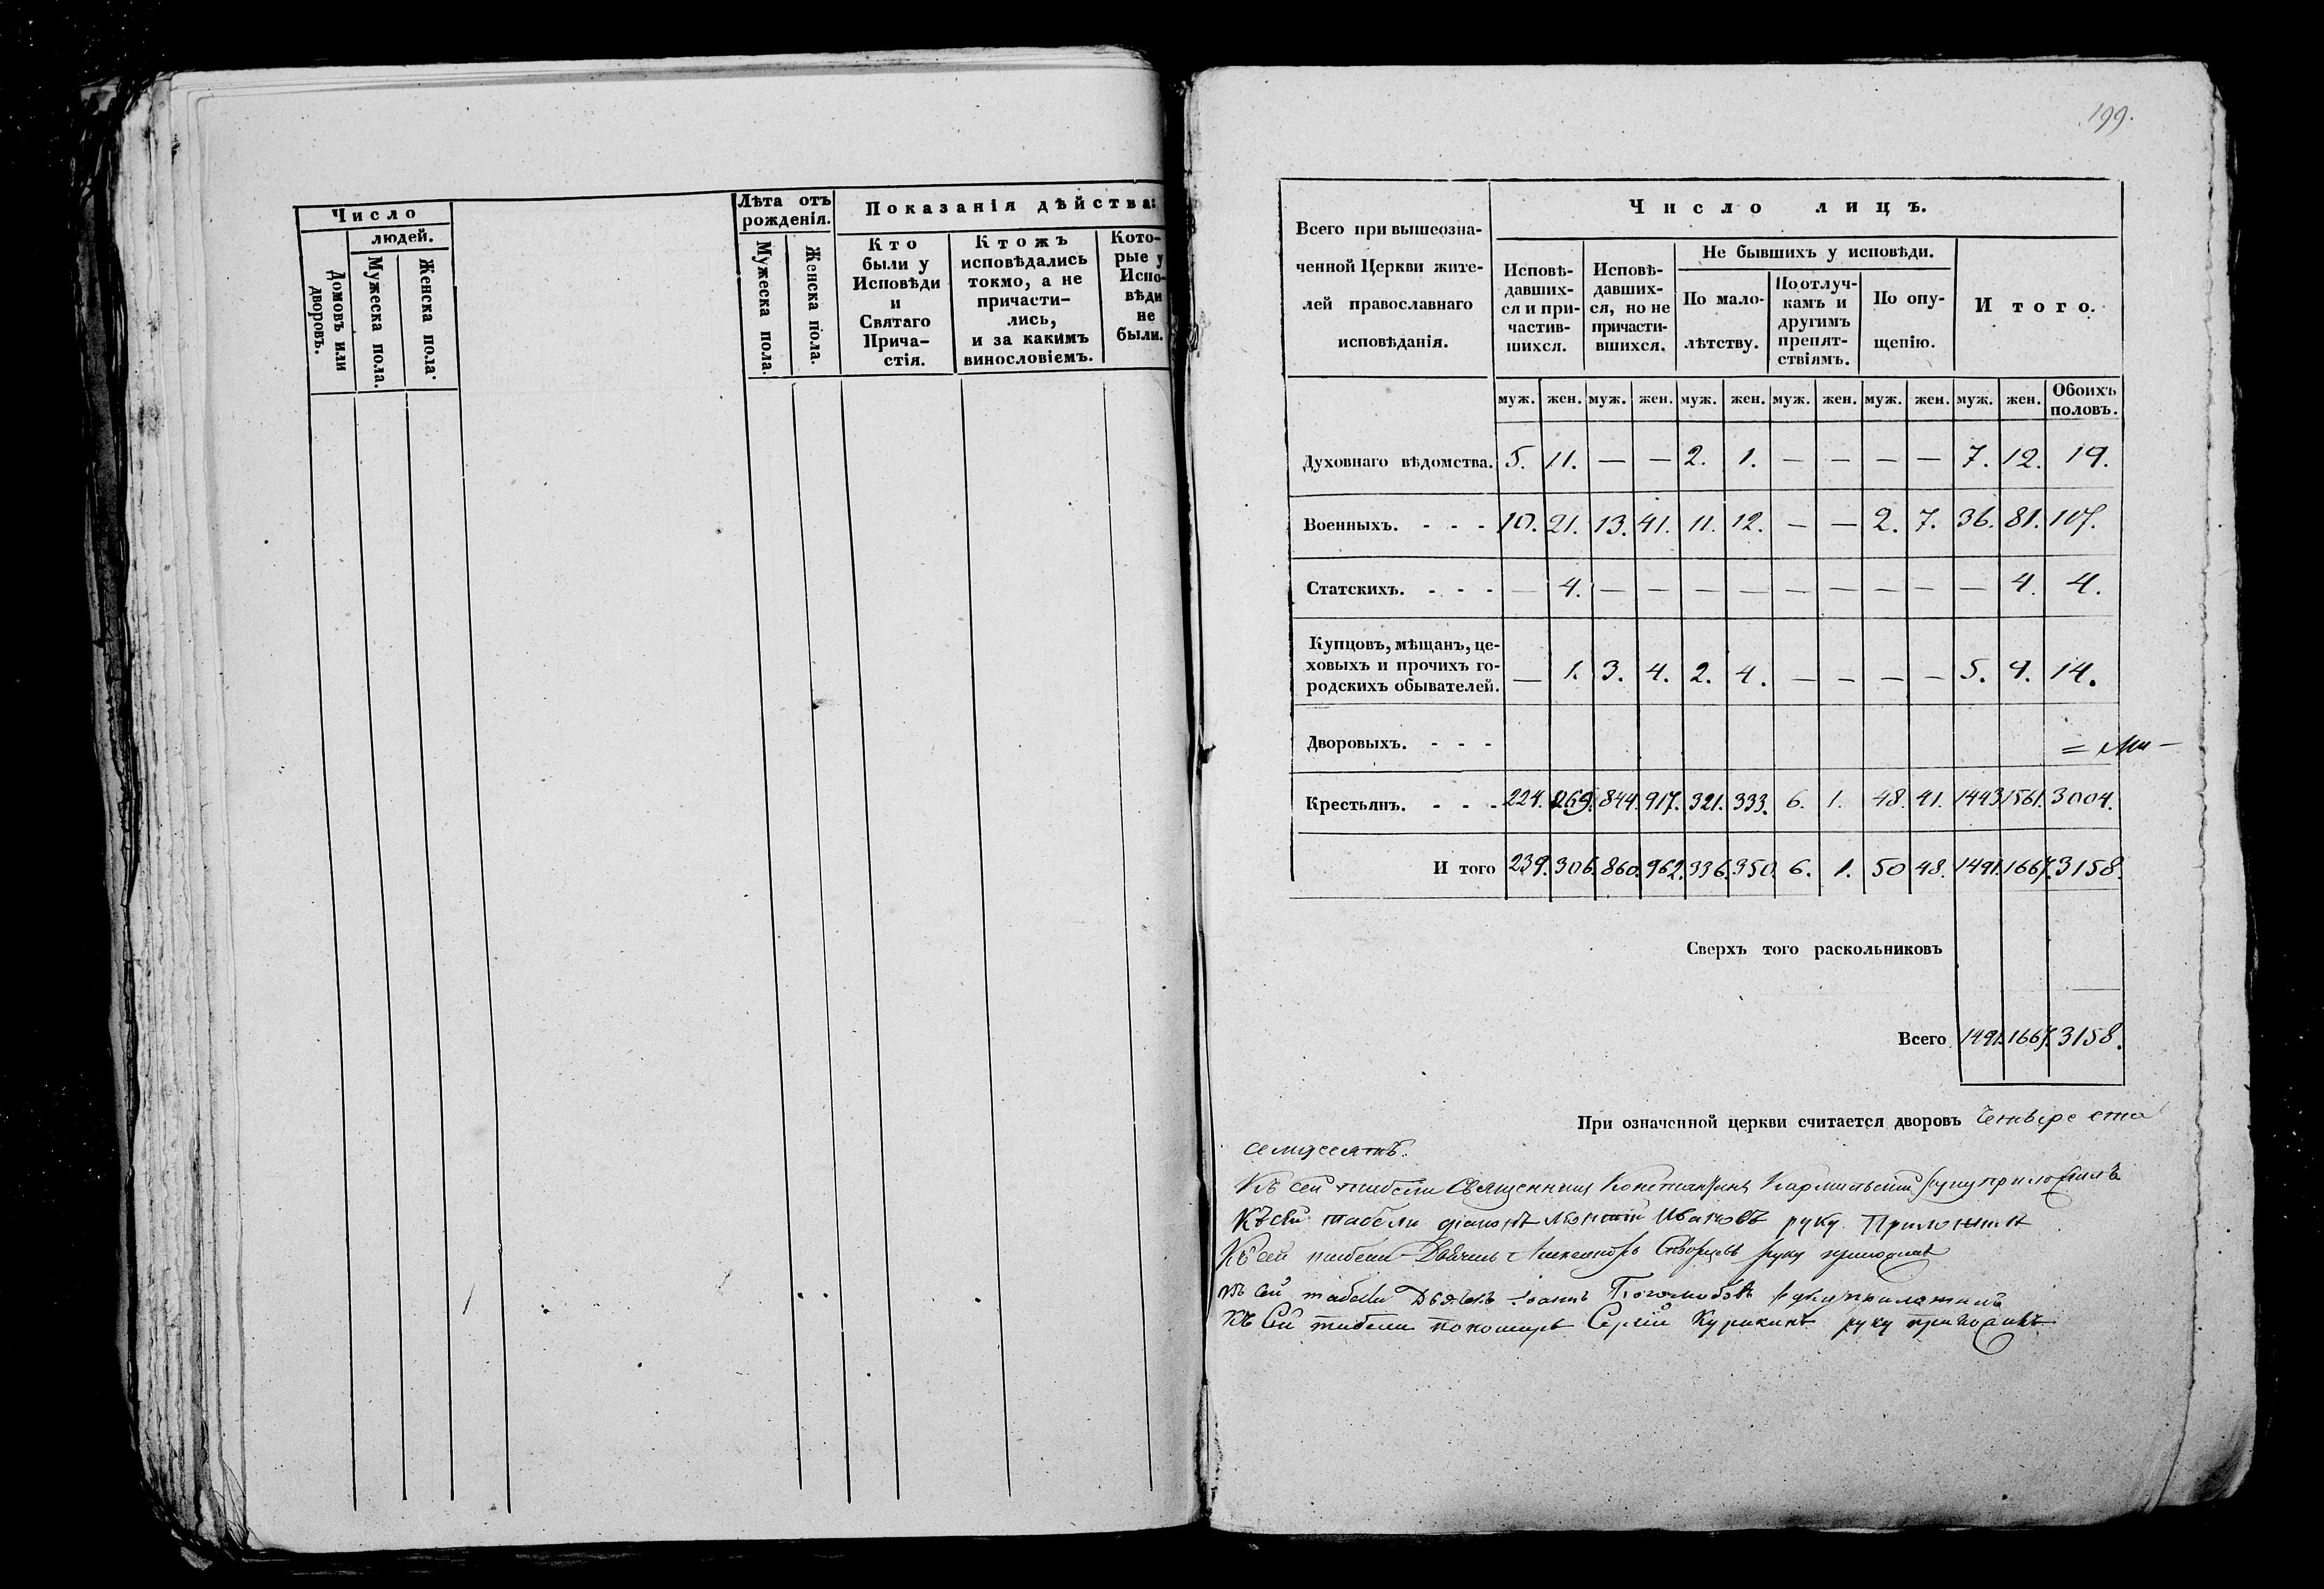 Число
людей.
Домовъ или дворовъ.
Мужеска пола.
Женска пола.
Лѣта отъ рожденія.
Мужеска пола.
Женска пола.
Показанія дѣйства:
Кто
были у
Исповѣди
и
Святаго
Прича-
стія.
Ктожъ
исповѣдались
токмо, а не
причасти-
лись,
и за какимъ
винословіемъ.
Кото-
рые у
Испо-
вѣди
не
были.
199.
Всего при вышеозна-
ченной Церкви жите-
лей православнаго
исповѣданія.
Число лицъ.
Исповѣ-
давших-
ся и при-
частив-
шихся.
Исповѣ-
давших-
ся, но не
причасти-
вшихся.
Не бывшихъ у исповѣди.
По мало-
лѣтству.
По отлуч-
камъ и
другимъ
препят-
ствіямъ.
По опу-
щенію.
И того.
муж. жен. муж. жен. муж. жен. муж. жен. муж. жен. муж. жен. Обоихъ половъ.
Духовнаго вѣдомства. 5. 11. — — 2. 1. — — — — 7. 12. 19.
Военныхъ. - - - 10. 21. 13. 41. 11. 12. — — 2. 7. 36. 81. 117.
Статскихъ. - - - — 4. — — — — — — — — — 4. 4.
Купцовъ, мѣщанъ, це-
ховыхъ и прочихъ го-
родскихъ обывателей. — 1. 3. 4. 2. 4. — — — — 5. 9. 14.
Дворовыхъ. - - -
Крестьянъ. - - - 224. 269. 844. 917. 321. 333. 6. 1. 48. 41. 1443. 1561. 3004.
И того 239. 306. 860. 962. 336. 350. 6. 1. 50 48. 1491. 1667. 3158.
Сверхъ того раскольниковъ
Всего 1491. 1667. 3158.
При означенной церкви считается дворовъ Четыре ста
семдесятъ.
Къ сей табели Священникъ Константинъ руку приложилъ
Къ сей табели діаконъ Леонтій Ивановъ руку Приложилъ
Къ сей табели Дьячекъ Александръ Скворцовъ руку приложилъ
къ сей табели Дьячекъ Іоаннъ Боголюбовъ руку приложилъ
Къ Сей табели пономарь Сергій Курикинъ руку приложилъ